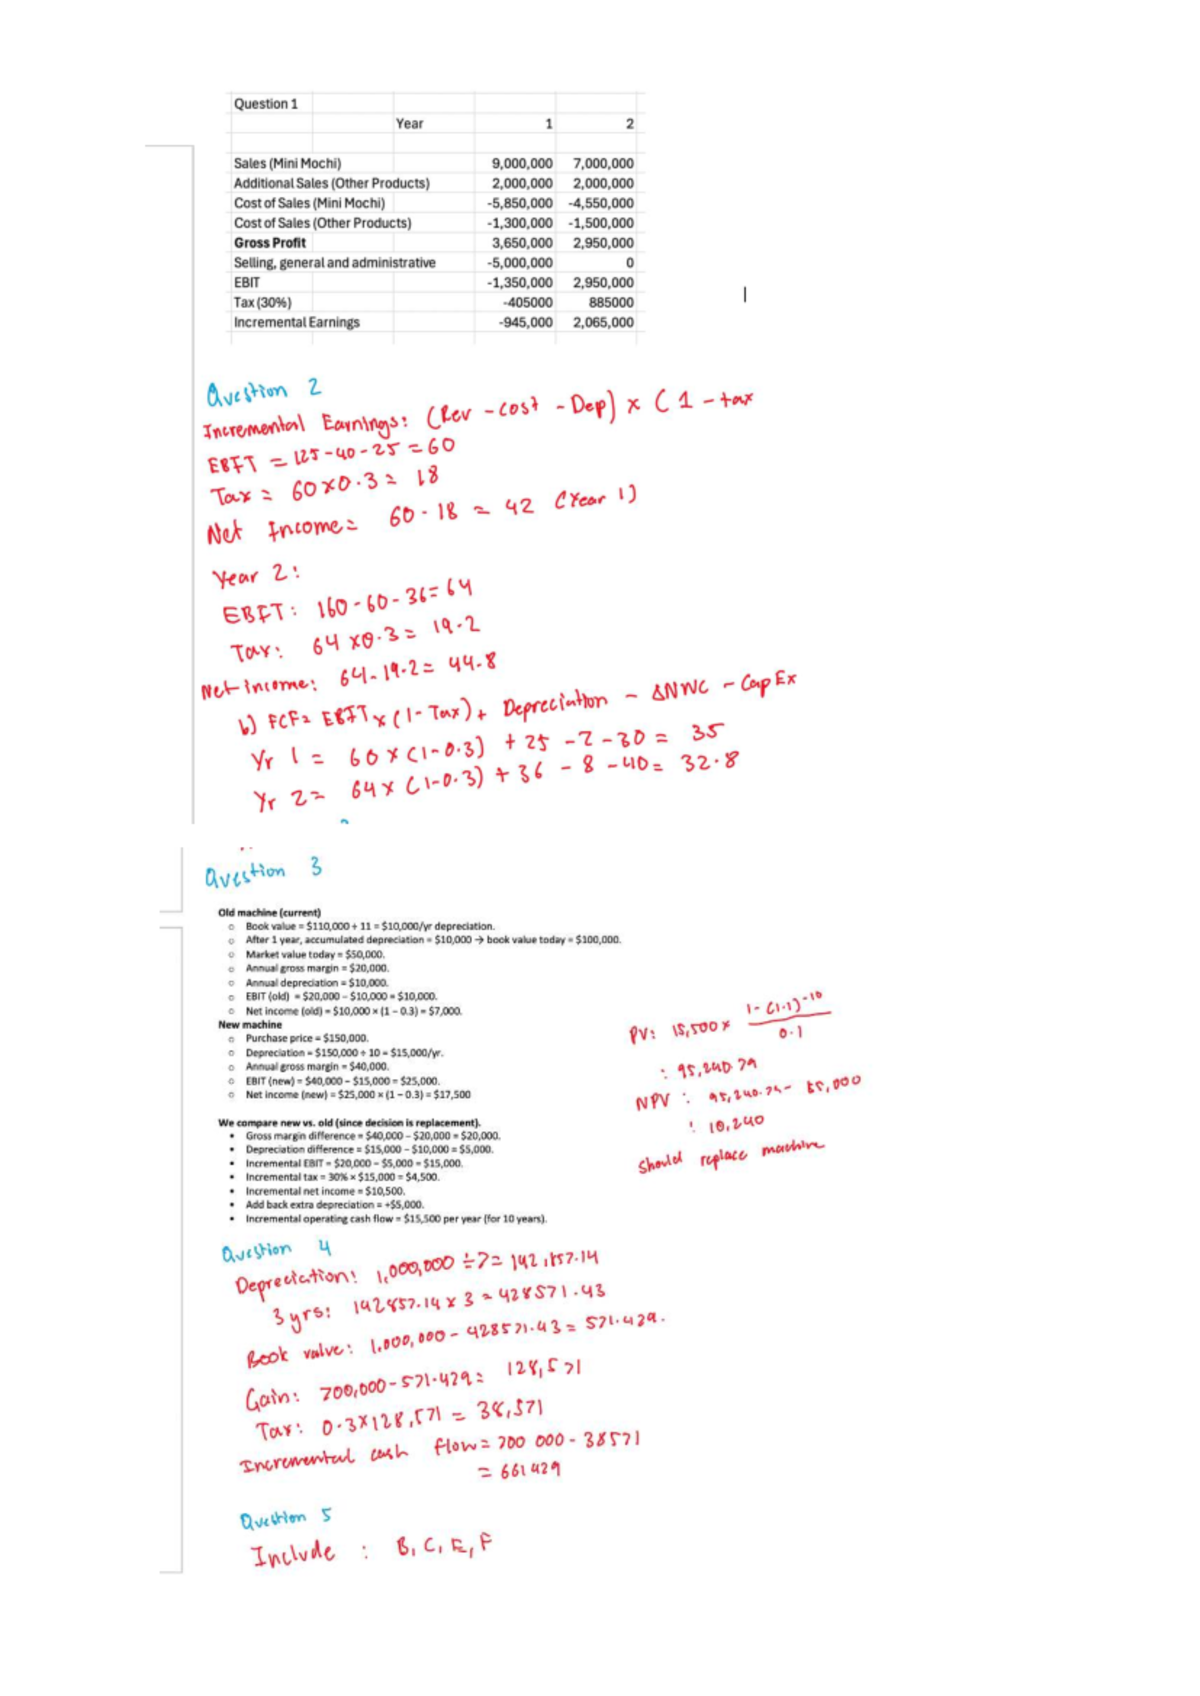 Question 1
Year 1 2
Sales (Mini Mochi) 9,000,000 7,000,000
Additional Sales (Other Products) 2,000,000 2,000,000
Cost of Sales (Mini Mochi) -5,850,000 -4,550,000
Cost of Sales (Other Products) -1,300,000 -1,500,000
Gross Profit 3,650,000 2,950,000
Selling, general and administrative -5,000,000 0
EBIT -1,350,000 2,950,000
Tax (30%) -405000 885000
Incremental Earnings -945,000 2,065,000
Question 2
Incremental Earnings: (Rev - cost - Dep) x (1 - tax
EBIT = 125-40-25 = 60
Tax = 60x0.3 = 18
Net Income = 60 - 18 = 42 (Year 1)
Year 2:
EBIT: 160-60-36= 64
Tax: 64 x0.3 = 19.2
Net income: 64-19.2 = 44.8
b) FCF = EBIT x (1- Tax) + Depreciation - ΔNWC - CapEx
Yr 1 = 60 x (1-0.3) + 25 - 2 - 30 = 35
Yr 2 = 64 x (1-0.3) + 36 - 8 - 40 = 32.8
Question 3
Old machine (current)
Book value = $110,000 ÷ 11 = $10,000/yr depreciation.
After 1 year, accumulated depreciation = $10,000 → book value today = $100,000.
Market value today = $50,000.
Annual gross margin = $20,000.
Annual depreciation = $10,000.
EBIT (old) = $20,000 – $10,000 = $10,000.
Net income (old) = $10,000 × (1 – 0.3) = $7,000.
New machine
Purchase price = $150,000.
Depreciation = $150,000 ÷ 10 = $15,000/yr.
Annual gross margin = $40,000.
EBIT (new) = $40,000 – $15,000 = $25,000.
Net income (new) = $25,000 × (1 – 0.3) = $17,500
We compare new vs. old (since decision is replacement).
Gross margin difference = $40,000 – $20,000 = $20,000.
Depreciation difference = $15,000 – $10,000 = $5,000.
Incremental EBIT = $20,000 – $5,000 = $15,000.
Incremental tax = 30% × $15,000 = $4,500.
Incremental net income = $10,500.
Add back extra depreciation = +$5,000.
Incremental operating cash flow = $15,500 per year (for 10 years).
PV: 15,500 x 1-(1.1)^-10
0.1
: 95,240.79
NPV : 95,240.79 - 85,000
: 10,240
should replace machine
Question 4
Depreciation: 1,000,000 ÷7= 142,857.14
3 yrs: 142857.14 x 3 = 428571.43
Book value: 1,000,000 - 428571.43 = 571.429.
Gain: 700,000-571.429 = 128,571
Tax: 0.3x128,571 = 38,571
Incremental cash flow = 700 000 - 38571
= 661429
Question 5
Include : B, C, E, F